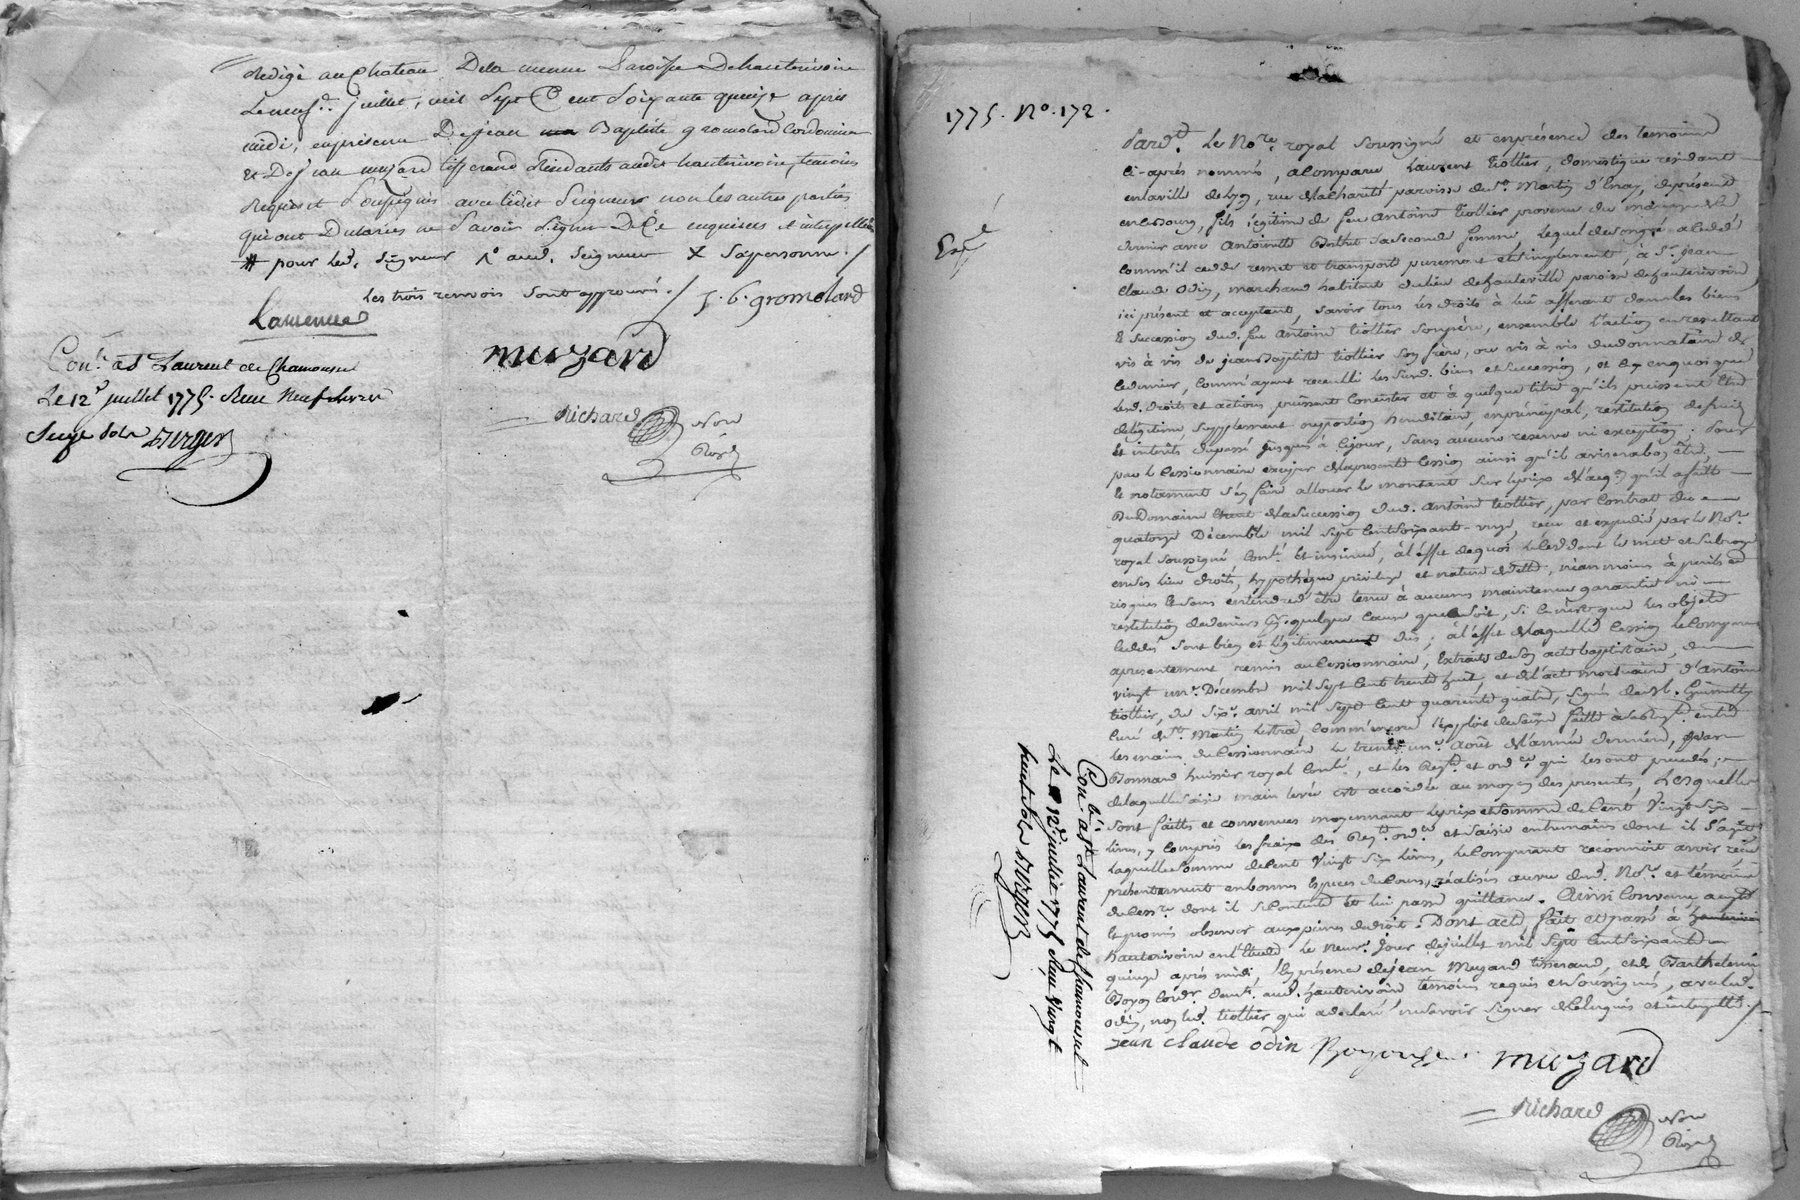 Redigé au Chateau De la meme Paroisse De hauterivoire
Le neufe juillet, mil Sept Cent Soixante quinze après
midi, en présence De jean Baptiste gromolard Cordonnier
et De jean muzard tisserand résidants audit hauterivoire, temoins
Requis et Soussignés avec ledit Seigneur non les autres parties
qui ont Declarées ne Savoir Signer De Ce enquises et interpellées
# pour led. Seigneur aud. Seigneur X Sa personne ./
Les trois renvois Sont approuvés ./ J. b. gromolard
Laurence
muzard
Con.lé à St Laurent de Chamousset
Le 12e juillet 1775. Reçu Neuf livres
Seize Sols Durger
Richard Nore
Royal
1775. No. 172.
Pard.t Le No.re royal Soussigné et en présence des temoins
ci-après nommés, a Comparu Laurent Viollier, domestique résidant
en la ville de Lyon, rue de la charité paroisse de St. Martin d'Enay, de présent
en ce Bourg, fils légitime de feu Antoine Viollier provenu du mariage de ce
dernier avec Antoinette Sa Seconde femme, Lequel de son gré a Cédé
comm'il cede remet et transporte purement et Simplement, à Sr. jean
Claude Odin, marchand habitant du lieu de hauteville, paroisse de hauterivoire,
ici présent et acceptant, Savoir tous les droits à lui afferant dans les biens
& Succession dud. feu Antoine Viollier Son père, ensemble l'action en resultant
vis à vis de jean Baptiste Viollier Son frère, ou vis à vis du donnataire de
ce dernier, Comm'ayant recueilli les Susd. biens et Succession, et en quoi que
Lesd. droits et actions puissent Consister et à quelque titre qu'ils puissent être
de légitime Supplement ou portion hereditaire, en principal, restitution de fruits
et interêts du passé jusques à Cejour, Sans aucune reserve ni exception : Pour
par le Cessionnaire exercer la présente Cession ainsi qu'il avisera bon être,
& notament S'en faire allouer le montant Sur le prix de l'acq.on qu'il a fait
Du Domaine de la Succession dud. Antoine Viollier, par Contrat du
quatorze Décembre mil Sept Cent Soixante-onze, reçu et expedié par le No.re
royal Soussigné, Con.lé et insinué, à l'éffet de quoi le Cedant le met et Subroge
en Ses lieu droits, hypothèque privilege et nature de dette, néanmoins à perils et
risques & Sans entendre être tenu à aucune maintenue garantie ni
restitution de deniers pour quelque Cause que ce Soit, Si Ce n'est que les objets
Cedés Sont bien et légitimement dus ; à l'éffet de laquelle Cession le Comparant
a presentement remis au Cessionnaire, Extraits de Son acte baptistaire, du
vingt un.e Décembre mil Sept Cent trente huit, et de l'acte mortuaire d'Antoine
Viollier, du Six.e avril mil Sept Cent quarente quatre, Signés de M.
Curé de St. Martin Lestra Comm'encore l'exploit de Saisie faitte à Sa Req.te entre
les mains du Cessionnaire le trente un.e Août de l'année derniere, par
Bonnard huissier royal Con.lé, et les Req.te et ord.ce qui les ont precedés ;
de laquelle Saisie main levée est accordée au moyen des presentes, Lesquelles
Sont faittes et convenues moyennant le prix et Somme de Cent Vingt Six
Livres, y Compris les fraix des Req.te ord.ce et Saisie entremains dont il S'agit
Laquelle Somme de Cent Vingt Six livres, le Comparant reconnoit avoir reçu
présentement en bonnes Especes de Cours, réalisées au vu dud. No.re et témoins
du Cess.re dont il Se Contente et lui passe quittance. Ainsi Convenu accepté
et promis observer aux peines du droit. Dont acte, fait et passé à
hauterivoire en l'Etude le Neuv.e jour de juillet mil Sept Cent Soixante
quinze après midi En présence de jean Muzard tisserand, et de Barthelemi
Boyon Cord.r demt. aud. hauterivoire témoins requis et Soussignés, avec led.
Odin, non led. Viollier qui a declaré ne Savoir Signer de Ce enquis et interpellé ./
Jean Claude Odin Boyon muzard
Richard Nore
Royal
Con.lé à St Laurent de Chamousset
Le 12e juillet 1775 Reçu Vingt
huit Sols Durger